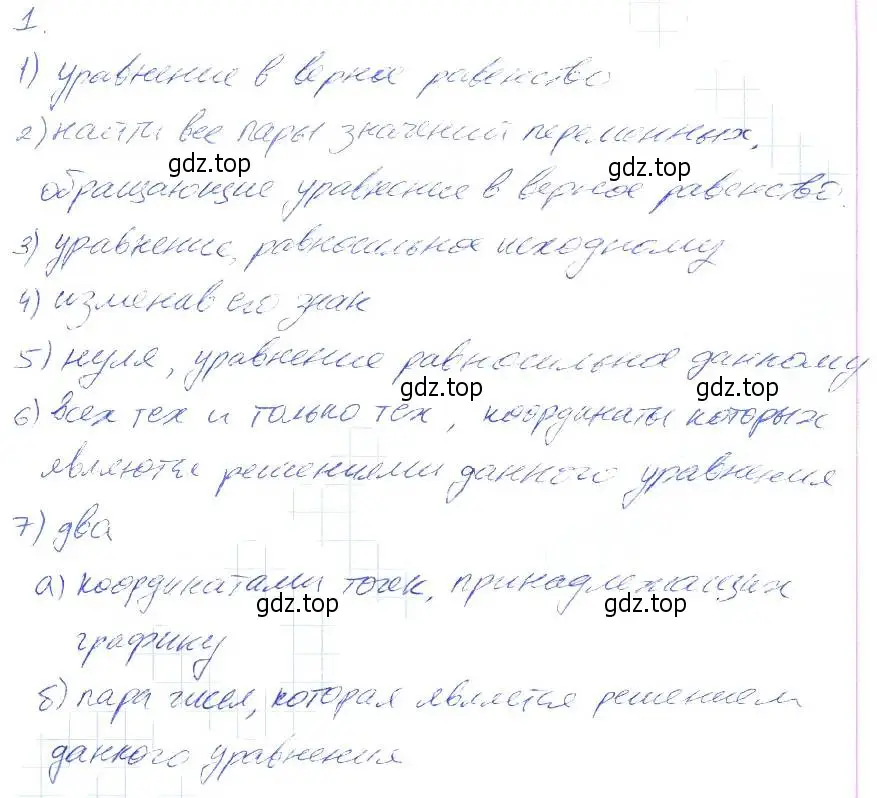 1.
1) уравнение в верное равенство
2) найти все пары значений переменных,
gdz.top gdz.top
обращающие уравнение в верное равенство.
3) уравнение, равносильное исходному
4) изменив его знак
5) нуля, уравнение равносильное данному
gdz.top gdz.top
6) всех тех и только тех, координаты которых
являются решениями данного уравнения
7) два
а) координатами точек, принадлежащих
gdz.top gdz.top
графику
б) пара чисел, которая является решением
данного уравнения